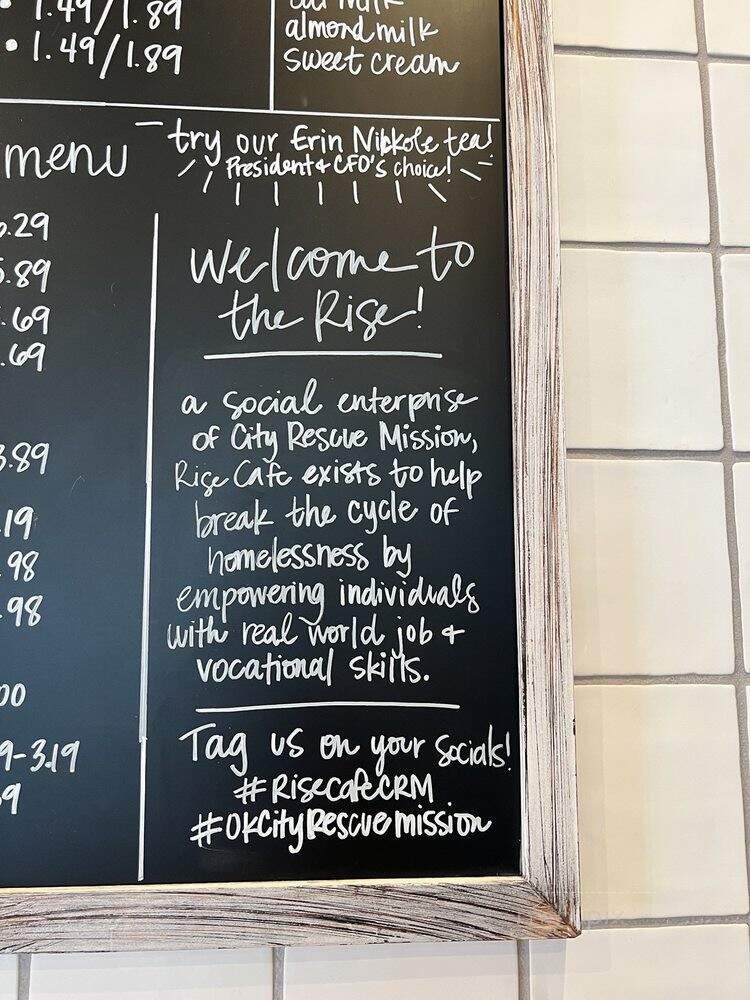 • 1.49/1.89
• 1.49/1.89
almond milk
sweet cream
menu
try our Erin Nickole tea!
President & CFO's choice!
.29
.89
.69
.69
3.89
.19
.98
.98
00
9-3.19
9
Welcome to
the Rise!
a social enterprise
of City Rescue Mission,
Rise Cafe exists to help
break the cycle of
homelessness by
empowering individuals
with real world job &
vocational skills.
Tag us on your socials!
#RiseCafeCRM
#OKCityRescuemission